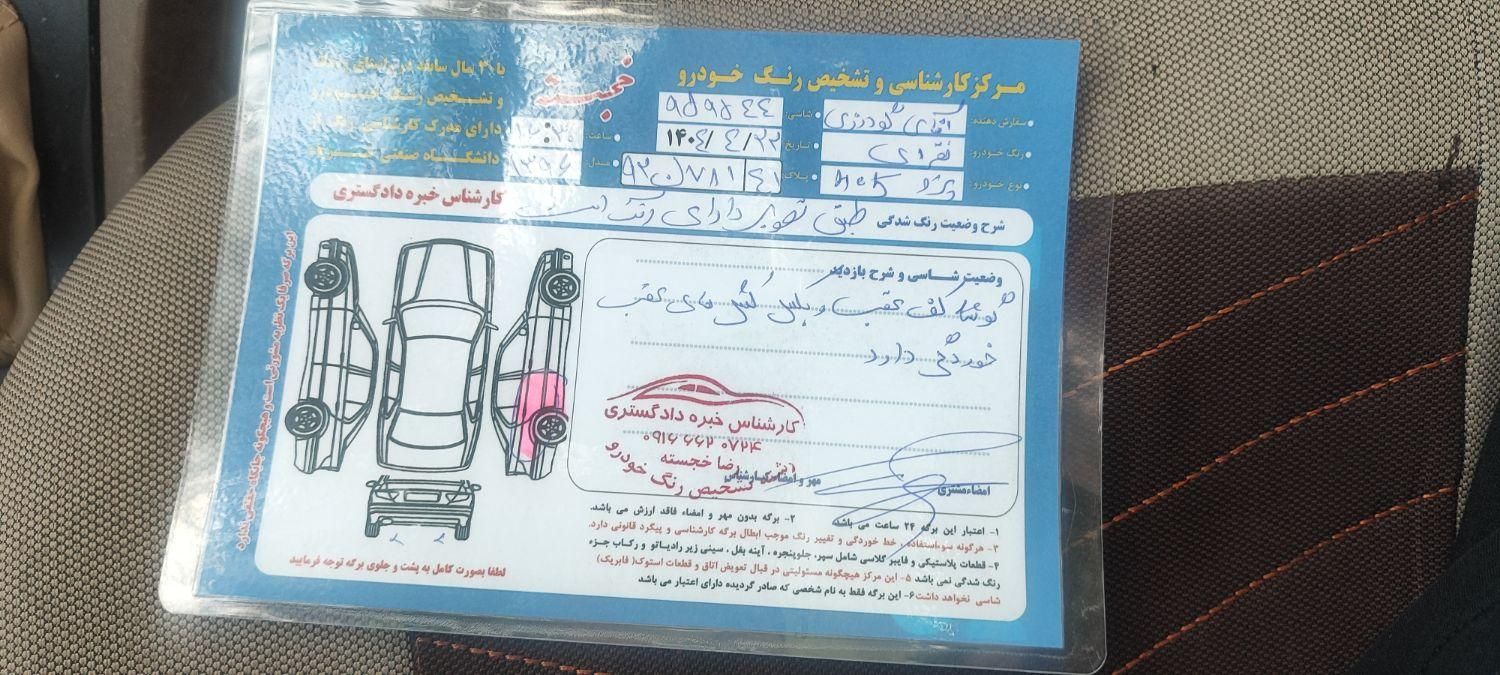 مرکز کارشناسی و تشخیص رنگ خودرو
خجسته
با ۳۰ سال سابقه در
و تشخیص رنگ خودرو
دارای مدرک کارشناسی رنگ از
دانشگاه صنعتی
سفارش دهنده: آقای گودرزی
شاسی:
رنگ خودرو: نقره ای
تاریخ: ۱۴۰۴/۴/۲۲
ساعت:
نوع خودرو: پژو
پلاک: ۹۳ن۷۸۱ ۴۱
مدل: ۱۳۹۶
شرح وضعیت رنگ شدگی طبق تصویر دارای رنگ است
کارشناس خبره دادگستری
وضعیت شاسی و شرح بازدید
گوشه کف عقب و پلس کش های عقب
خوردگی دارد
کارشناس خبره دادگستری
۰۹۱۶ ۶۶۲ ۰۷۲۴
رضا خجسته
تشخیص رنگ خودرو
مهر و امضاء کارشناس
امضاء مشتری
۱- اعتبار این برگه ۲۴ ساعت می باشد.
۲- برگه بدون مهر و امضاء فاقد ارزش می باشد.
۳- هرگونه سوءاستفاده، خط خوردگی و تغییر رنگ موجب ابطال برگه کارشناسی و پیگرد قانونی دارد.
۴- قطعات پلاستیکی و فایبر گلاسی شامل سپر، جلوپنجره، آینه بغل، سینی زیر رادیاتو و رکاب جزء
رنگ شدگی نمی باشد ۵- این مرکز هیچگونه مسئولیتی در قبال تعویض اتاق و قطعات استوک( فابریک)
شاسی نخواهد داشت ۶- این برگه فقط به نام شخصی که صادر گردیده دارای اعتبار می باشد
لطفا بصورت کامل به پشت و جلوی برگه توجه فرمایید
این برگه صرفا یک نظریه مشورتی است و هیچگونه جایگاه حقوقی ندارد